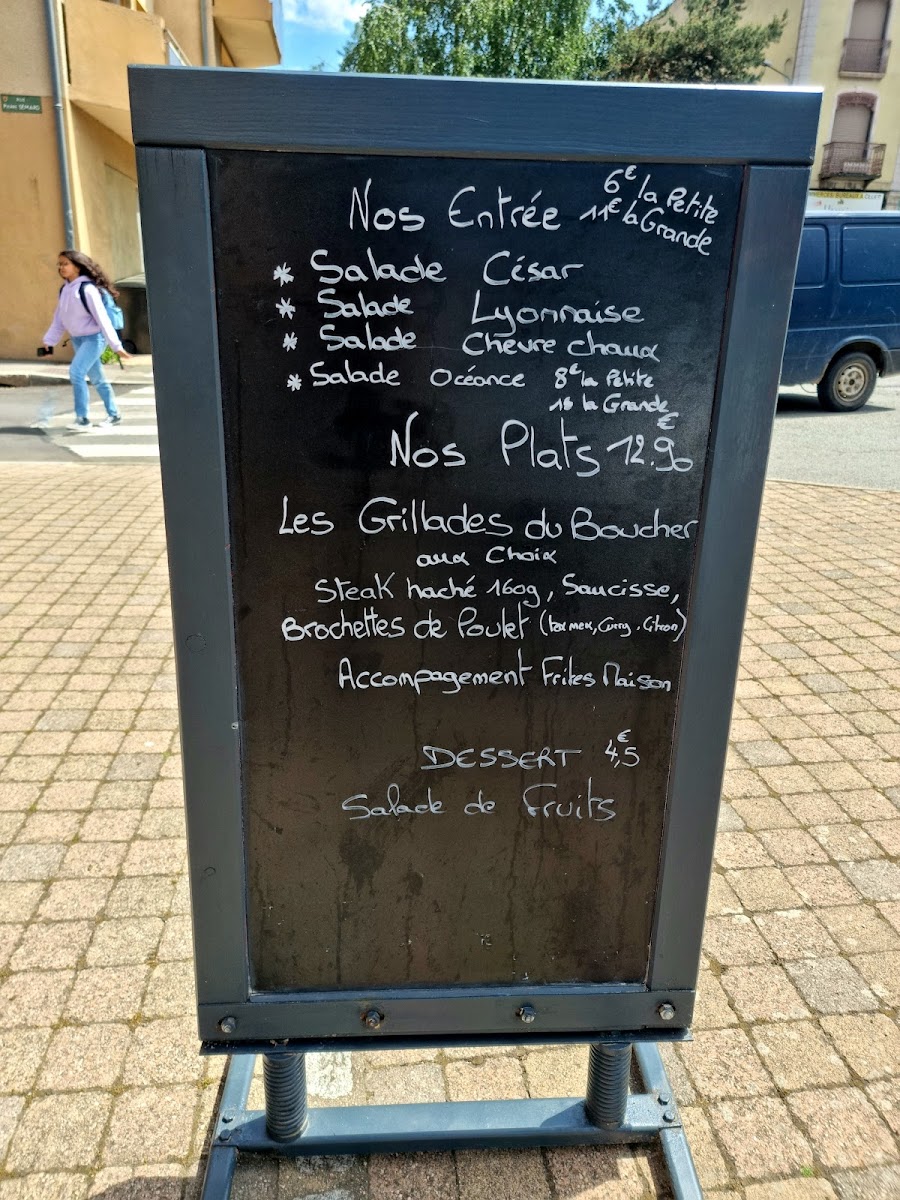 RUE
Pierre SEMARD
Nos Entrée 6€ la Petite
11€ la Grande
* Salade César
* Salade Lyonnaise
* Salade Chèvre chaux
* Salade Océance 8€ la Petite
la Grande
Nos Plats 12.90€
Les Grillades du Boucher
aux Choix
Steak haché 160g, Saucisse,
Brochettes de Poulet (tex mex, Curry, Citron)
Accompagement Frites Maison
DESSERT 4,5€
Salade de Fruits